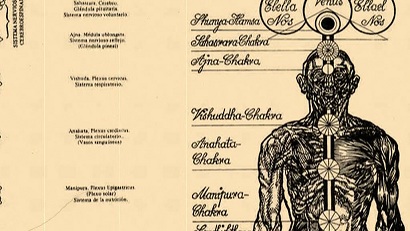 SISTEMA NERVIOSO
CEREBROESPINAL
Sahasrara, Cerebro,
Glándula pituitaria.
Sistema nervioso voluntario.
Ajna. Médula oblongata.
Sistema nervioso reflejo.
(Glándula pineal)
Vishuda, Plexus cervicae,
Sistema respiratorio.
Anahata, Plexus cardiacus.
Sistema circulatorio.
(Vasos sanguíneos)
Manipura, Plexus Epigastricus
(Plexo solar)
Sistema de la nutrición.
Elella
Nos
Venus
Ellael
Nos
Shunya-Hamsa
Sahasrara-Chakra
Ajna-Chakra
Vishuddha-Chakra
Anahata-
Chakra
Manipura-
Chakra